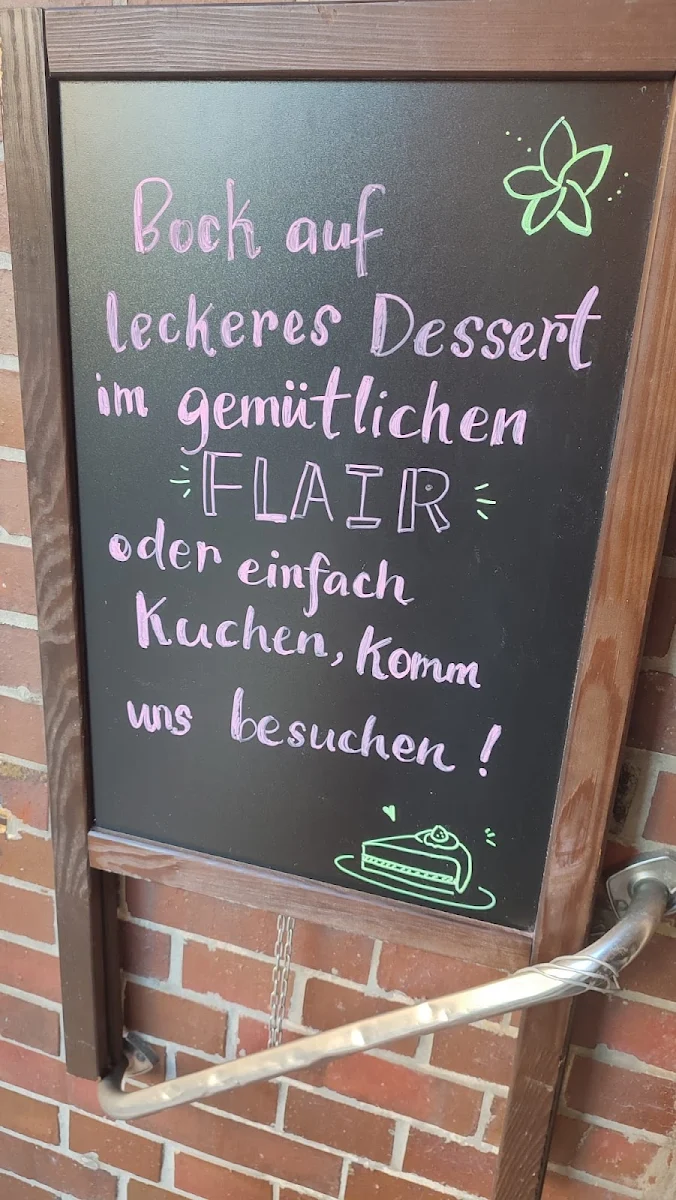 Bock auf
leckeres Dessert
im gemütlichen
FLAIR
oder einfach
Kuchen, Komm
uns besuchen!